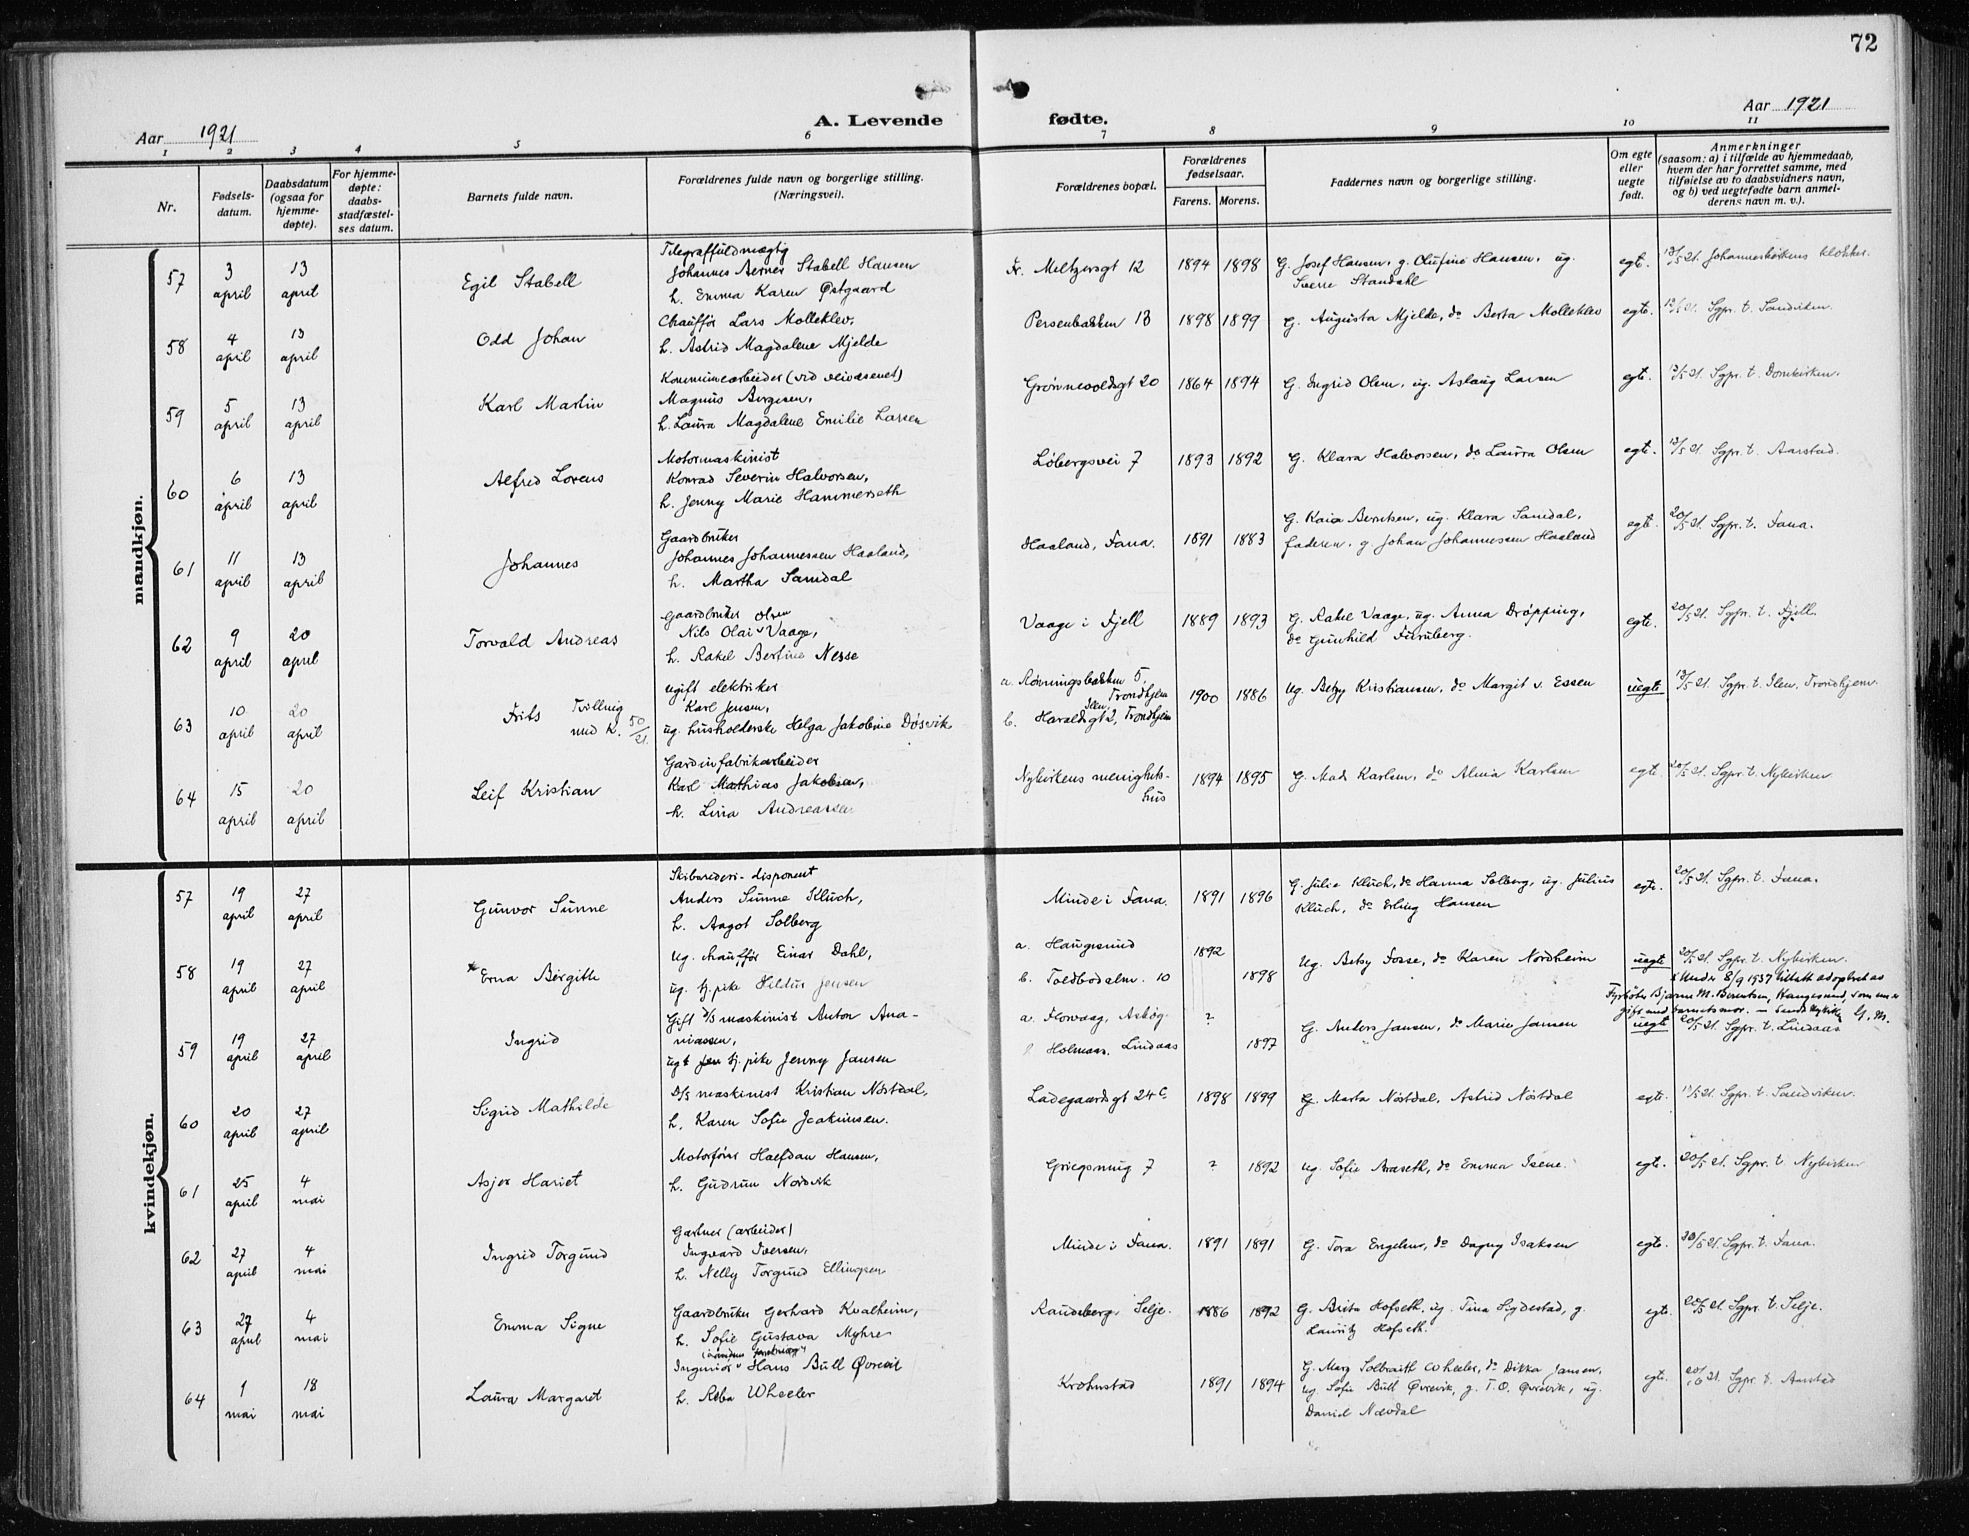 72
Aar 1921
A. Levende fødte.
Aar 1921
1 2 3 4 5 6 7 8 9 10 11
Nr.
Fødsels-
datum.
Daabsdatum
(ogsaa for
hjemme-
døpte).
For hjemme-
døpte:
daabs-
stadfæstel-
ses datum.
Barnets fulde navn.
Forældrenes fulde navn og borgerlige stilling.
(Næringsvei).
Forældrenes bopæl.
Forældrenes
fødselsaar.
Farens. Morens.
Faddernes navn og borgerlige stilling.
Om egte
eller
uegte
født.
Anmerkninger
(saasom: a) i tilfælde av hjemmedaab,
hvem der har forrettet samme, med
tilføielse av to daabsvidners navn,
og b) ved uegtefødte barn anmel-
derens navn m. v.).
mandkjøn.
57
3
april
13
april
Egil Stabell
Telegraffuldmægtig
Johannes Aerner Stabell Hansen
h. Emma Karen Østgaard
Fr. Meltzersgt 12
1894 1898
G. Josef Hansen, g. Olufine Hansen, ug.
Sverre Standahl
egte.
13/5 21. Johanneskirkens klokker.
58
4
april
13
april
Odd Johan
Chauffør Lars Molleklev,
h. Astrid Magdalene Mjelde
Persenbakken 13
1898 1899
G. Augusta Mjelde, do Berta Molleklev
egte.
Sgpr. t. Sandviken.
59
5
april
13
april
Karl Martin
Kommunearbeider (ved veivæsenet)
Magnus Bergesen,
h. Laura Magdalene Emilie Larsen
Grønnevoldsgt 20
1864 1894
G. Ingrid Olsen, ug. Aslaug Larsen
egte.
Sgpr. t. Domkirken.
60
6
april
13
april
Alfred Lorens
Motormaskinist
Konrad Severin Halvorsen,
h. Jenny Marie Hammerseth
Løbergsvei 7
1893 1892
G. Klara Halvorsen, do Laura Olsen
egte.
13/5 21. Sgpr. t. Aarstad.
61
11
april
13
april
Johannes
Gaardbruker
Johannes Johannessen Haaland,
h. Martha Samdal
Haaland, Fana.
1891 1883
G. Kaia Berntsen, ug. Klara Samdal,
faderen, g. Johan Johannessen Haaland
egte.
20/5 21. Sgpr. t. Fana.
62
9
april
20
april
Torvald Andreas
Gaardbruker Olsen
Nils Olai Vaage,
h. Rakel Bertine Nesse
Vaage i Fjell
1889 1893
G. Rakel Vaage, ug. Anna Drøpping,
do Gunhild Furuberg.
egte.
20/5 21. Sgpr. t. Fjell.
63
10
april
20
april
Frits Tvilling
med K. 50/21.
ugift elektriker
Karl Jensen,
ug. husholderske Helga Jakobine Døsvik
a. Rønningsbakken 5,
Ilen, Trondhjem
b. Haraldsgt 2, Trondhjem
1900 1886
Ug. Betzy Kristiansen, do Margit v. Essen
uegte
13/5 21. Sgpr. t. Ilen, Trondhjem.
64
15
april
20
april
Leif Kristian
Gardinfabrikarbeider
Karl Mathias Jakobsen,
h. Lina Andreassen
Nykirkens menighets-
hus
1894 1895
G. Mad Karlsen, do Alma Karlsen
egte.
20/5 21. Sgpr. t. Nykirken
kvindekjøn.
57
19
april
27
april
Gunvor Sunne
Skibsrederi-disponent
Anders Sunne Kluch,
h. Aagot Solberg
Minde i Fana.
1891 1896
G. Julie Kluch, do Hanna Solberg, ug. Julius
Kluch, do Erling Hansen
egte.
20/5 21. Sgpr. t. Fana.
58
19
april
27
april
* Erna Bergitte
Ug. chauffør Einar Dahl,
ug. tj. pike Hildur Jensen
a. Haugesund
b. Toldbodalm. 10
1892
1898
Ug. Betsy Fosse, do Karen Nordheim
uegte
20/5 21. Sgpr. t. Nykirken.
x Under 8/9 1937 tillatt adoptert av
Fyrbøter Bjarne M. Berentsen, Haugesund, som er
gift med barnets mor. G. M.
59
19
april
27
april
Ingrid
Gift D/S maskinist Anton Ana-
niassen,
ugt tj. pike Jenny Jansen
a. Florvaag, Askøy
Holmaas, Lindaas
?
1897
G. Anders Jansen, do Marie Jansen
uegte
20/5 21. Sgpr. t. Lindaas
60
20
april
27
april
Sigrid Mathilde
D/S maskinist Kristian Nøstdal,
h. Karen Sofie Joakimsen.
Ladegaardsgt 24 c
1898 1899
G. Marta Nøstdal, Astrid Nøstdal
egte.
Sgpr. t. Sandviken.
61
25
april
4
mai
Asjer Hariet
Motorfører Halfdan Hansen,
h. Gudrun Nordvik
Griegsmug 7
? 1892
Ug. Sofie Araseth, do Emma Isene.
egte.
20/5 21. Sgpr. t. Nykirken
62
27
april
4
mai
Ingrid Torgund
Gartner (arbeider)
Ingvard Iversen,
h. Nelly Torgund Ellingsen
Minde i Fana.
1891 1891
G. Tora Engelsen, do Dagny Isaksen
egte.
20/5 21. Sgpr. t. Fana.
63
27
april
4
mai
Emma Signe
Gaardbruker Gerhard Kvalheim,
h. Sofie Gustava Myhre
Raudeberg, Selje.
1886 1892
G. Brita Hofseth, ug. Tina Sigdestad, g.
Lauritz Hofseth.
egte.
20/5 21. Sgpr. t. Selje.
64
1
mai
18
mai
Laura Margaret
Ingeniør Hans Bull Øvrevik
h. Reba Wheeler
Krohnstad
1891 1894
G. Marg Solbraith Wheeler, do Dikka Jansen,
ug. Sofie Bull Øvrevik, g. T.O. Øvrevik, ug.
David Nævdal
egte.
20/6 21. Sgpr. t. Aarstad